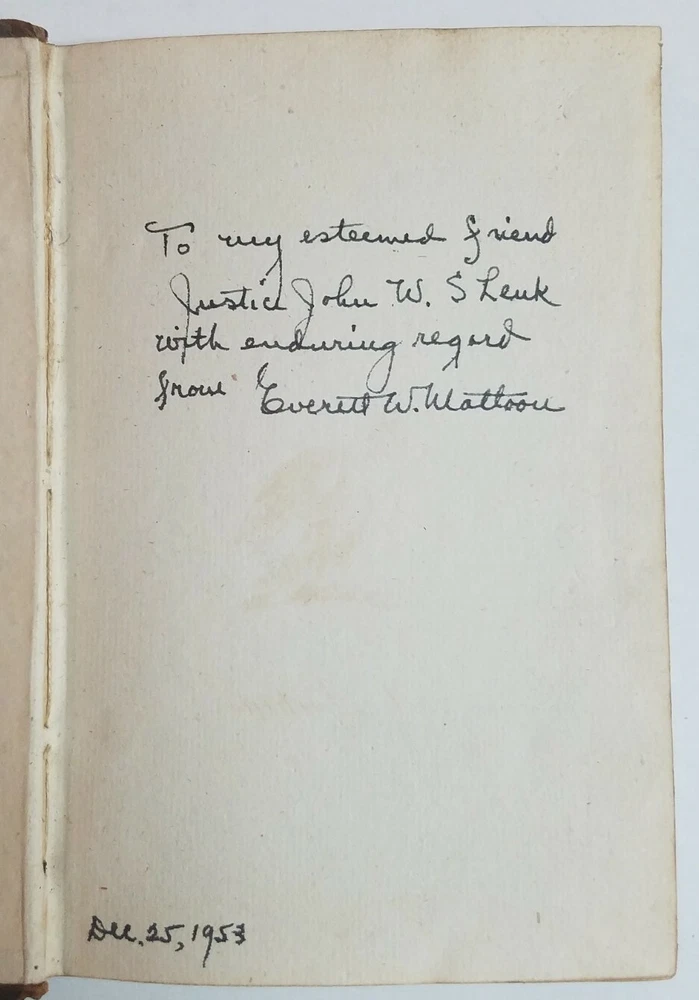 To my esteemed friend
Justice John W. Shenk
with enduring regard
from Everett W. Mattoon
Dec. 25, 1953